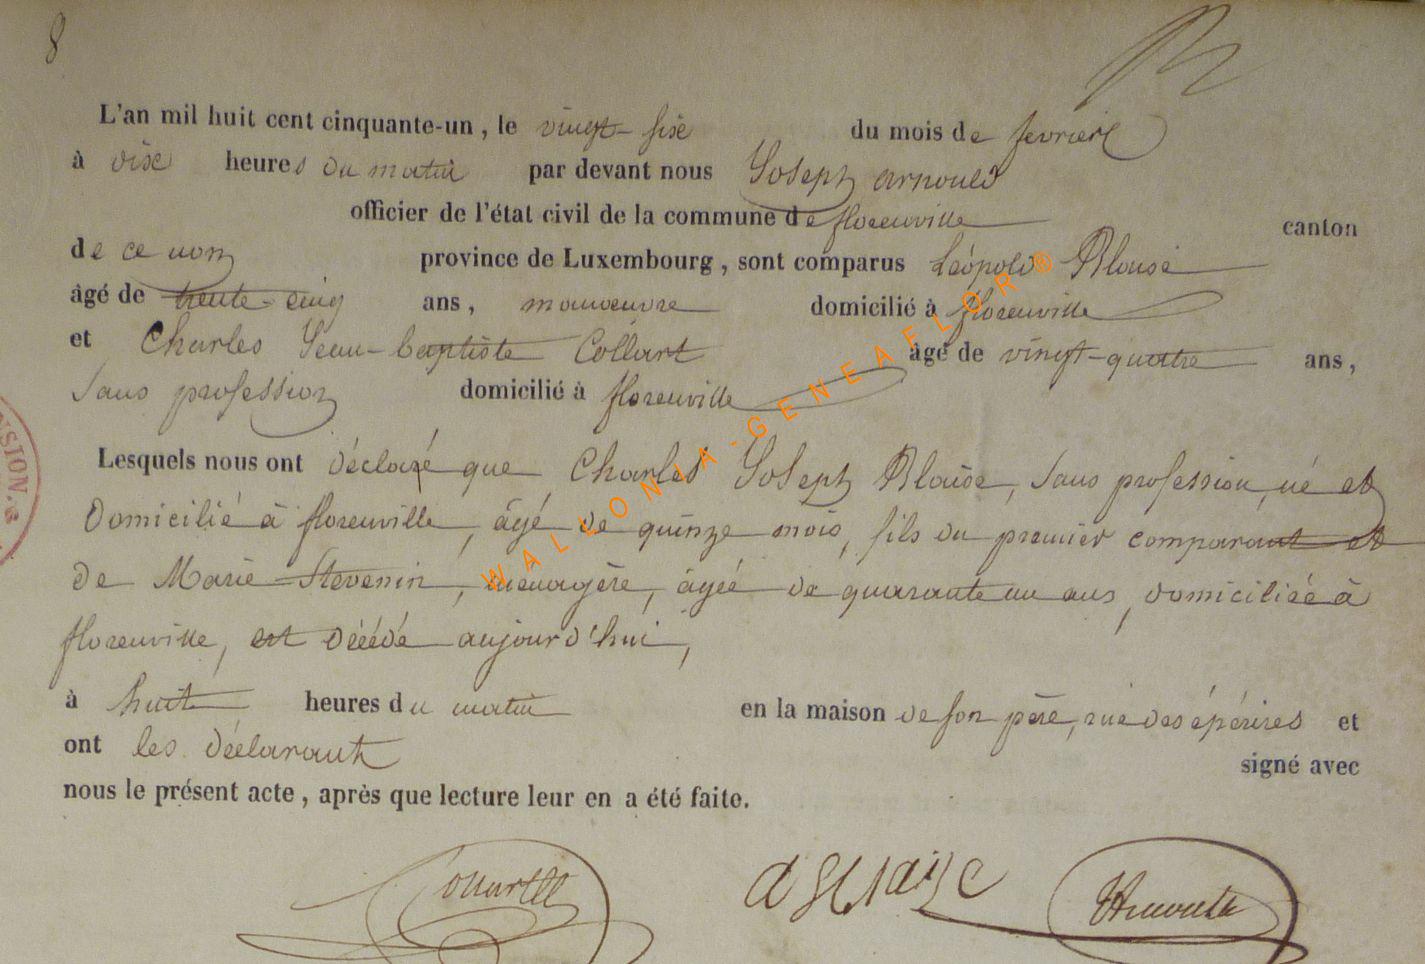 8
L'an mil huit cent cinquante-un, le vingt-six du mois de fevrier
à dix heures du matin par devant nous Joseph arnould
officier de l'état civil de la commune de florenville canton
de ce nom province de Luxembourg, sont comparus Léopold Blaise
âgé de trente-cinq ans, manoeuvre domicilié à florenville
et Charles Jean-baptiste Collart âgé de vingt-quatre ans,
sans profession domicilié à florenville
Lesquels nous ont déclaré que Charles Joseph Blaise, sans profession, né et
domicilié à florenville, âgé de quinze mois, fils du premier comparant et
de Marie Stevenin, menagère, âgée de quarante un ans, domiciliée à
florenville, est décédé aujourd'hui,
à huit heures du matin en la maison de son père, rue des épérires et
ont les déclarant signé avec
nous le présent acte, après que lecture leur en a été faite.
NSION.
WALLONIA-GENEAFLOR®